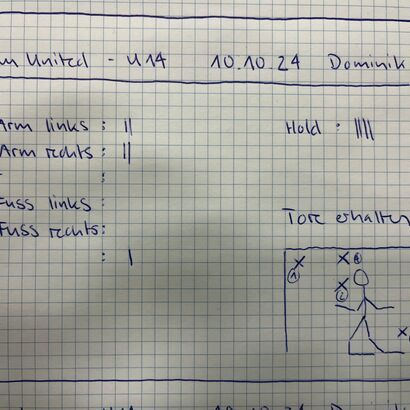 United - U14 10.10.24 Dominik
Arm links : ||
Hold : |||||
Arm rechts : ||
:
Fuss links :
Fuss rechts:
Tore erhalten
: |
1
2